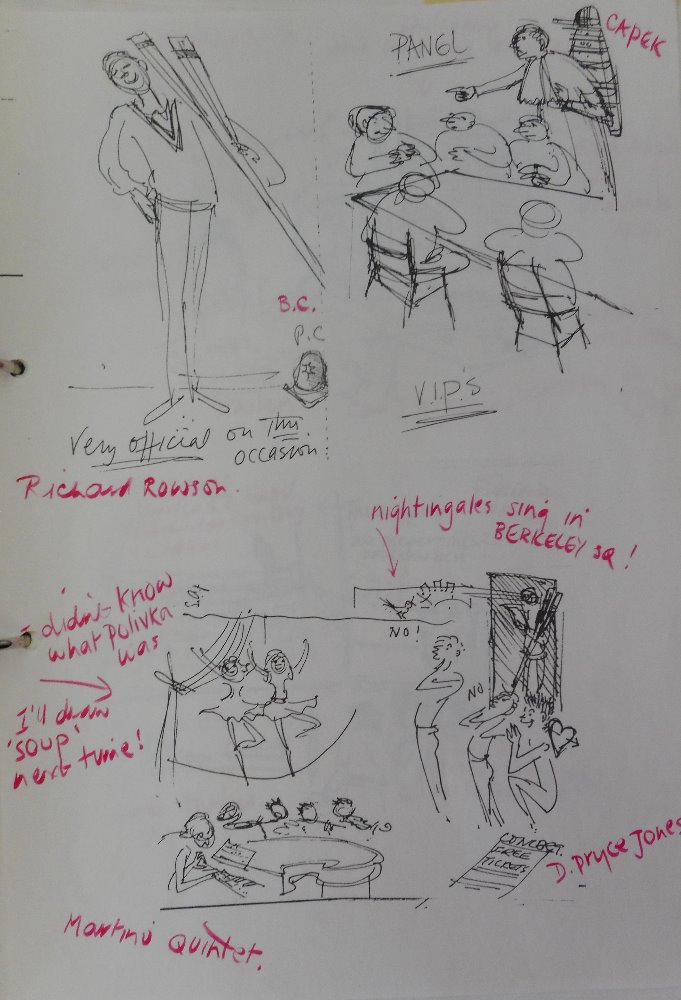 PANEL
CAPEK
B.C.
P.C
V.I.P.'s
Very official on This
occasion.
Richard Rowson.
nightingales sing in
BERKELEY sq!
didn't know
what Polivka
was
I'll draw
'SOUP'
next time!
NO!
NO
CONCERT.
FREE
TICKETS
D. Pryce Jones
Martinu Quintet.